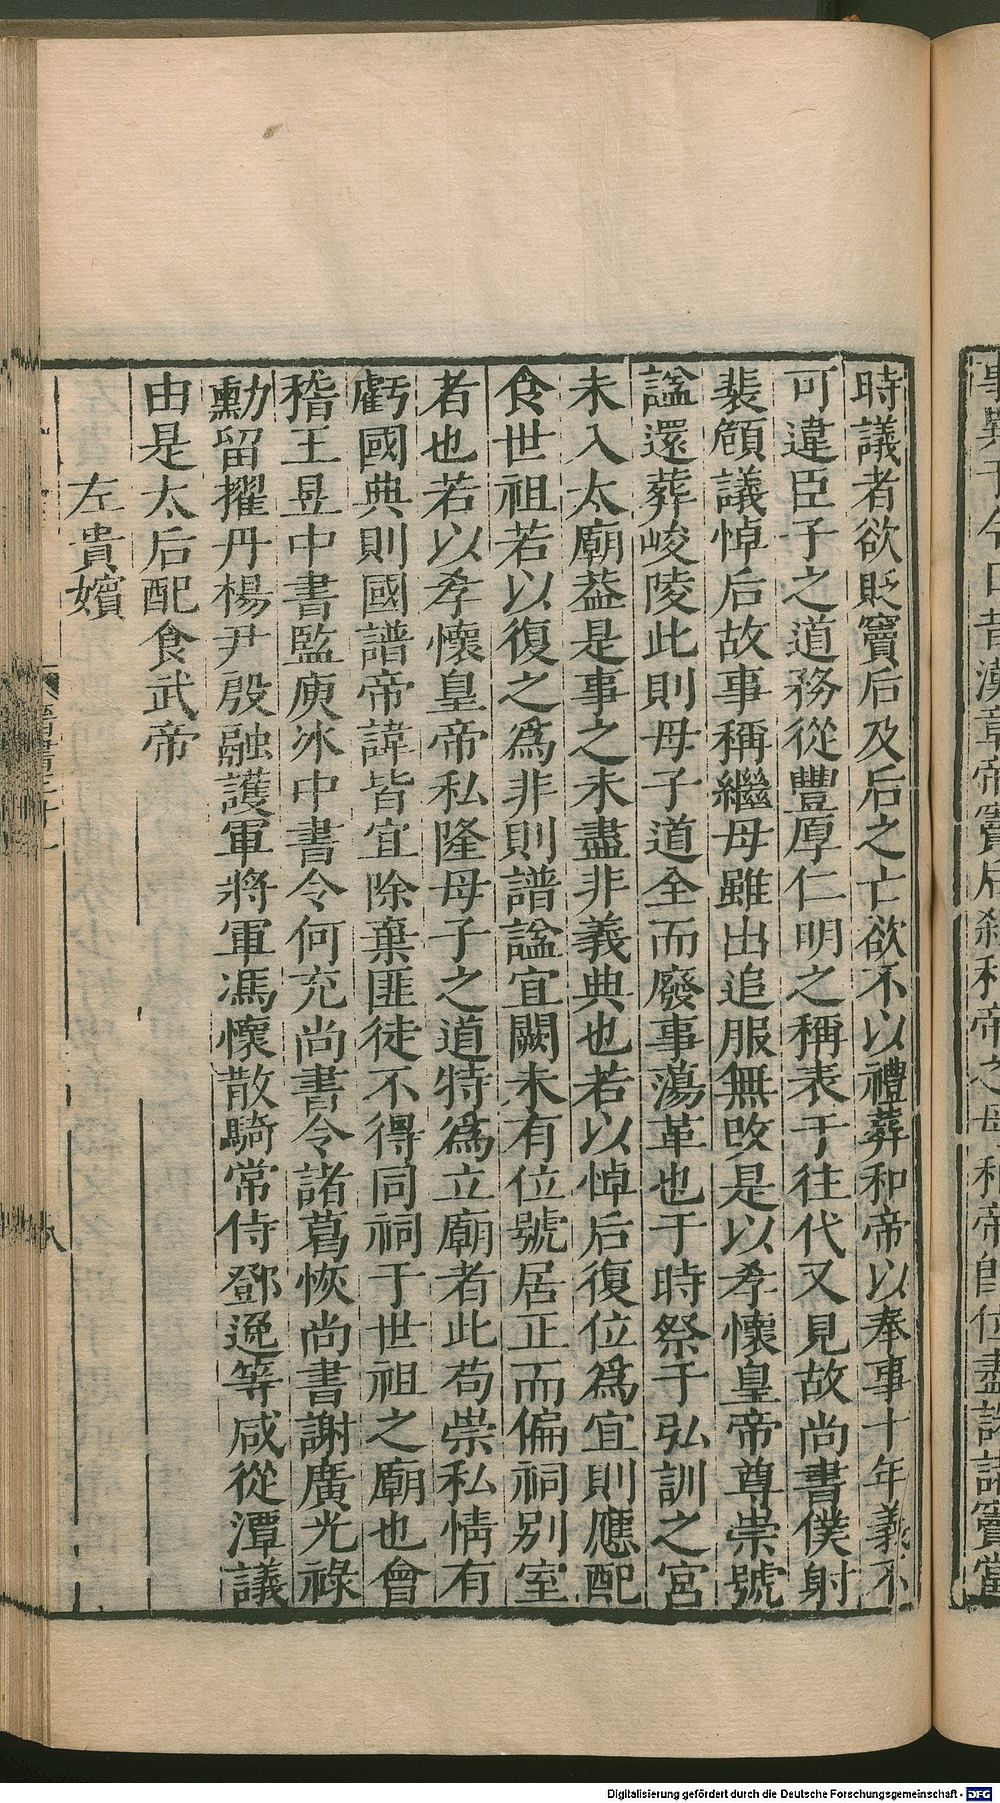 時議者欲貶竇后及后之亡欲不以禮葬和帝以奉事十年義不
可違臣子之道務從豐厚仁明之稱表于往代又見故尚書僕射
裴頠議悼后故事稱繼母雖出追服無改是以孝懷皇帝尊崇號
諡還葬峻陵此則母子道全而廢事蕩革也于時祭于弘訓之宮
未入太廟葢是事之未盡非義典也若以悼后復位爲宜則應配
食世祖若以復之爲非則譜諡宜闕未有位號居正而偏祠别室
者也若以孝懷皇帝私隆母子之道特爲立廟者此苟崇私情有
虧國典則國譜帝諱皆宜除棄匪徒不得同祠于世祖之廟也會
稽王昱中書監庾冰中書令何充尚書令諸葛恢尚書謝廣光祿
勳留擢丹楊尹殷融護軍將軍馮懷散騎常侍鄧逸等咸從潭議
由是太后配食武帝
左貴嬪
Digitalisierung gefördert durch die Deutsche Forschungsgemeinschaft - DFG